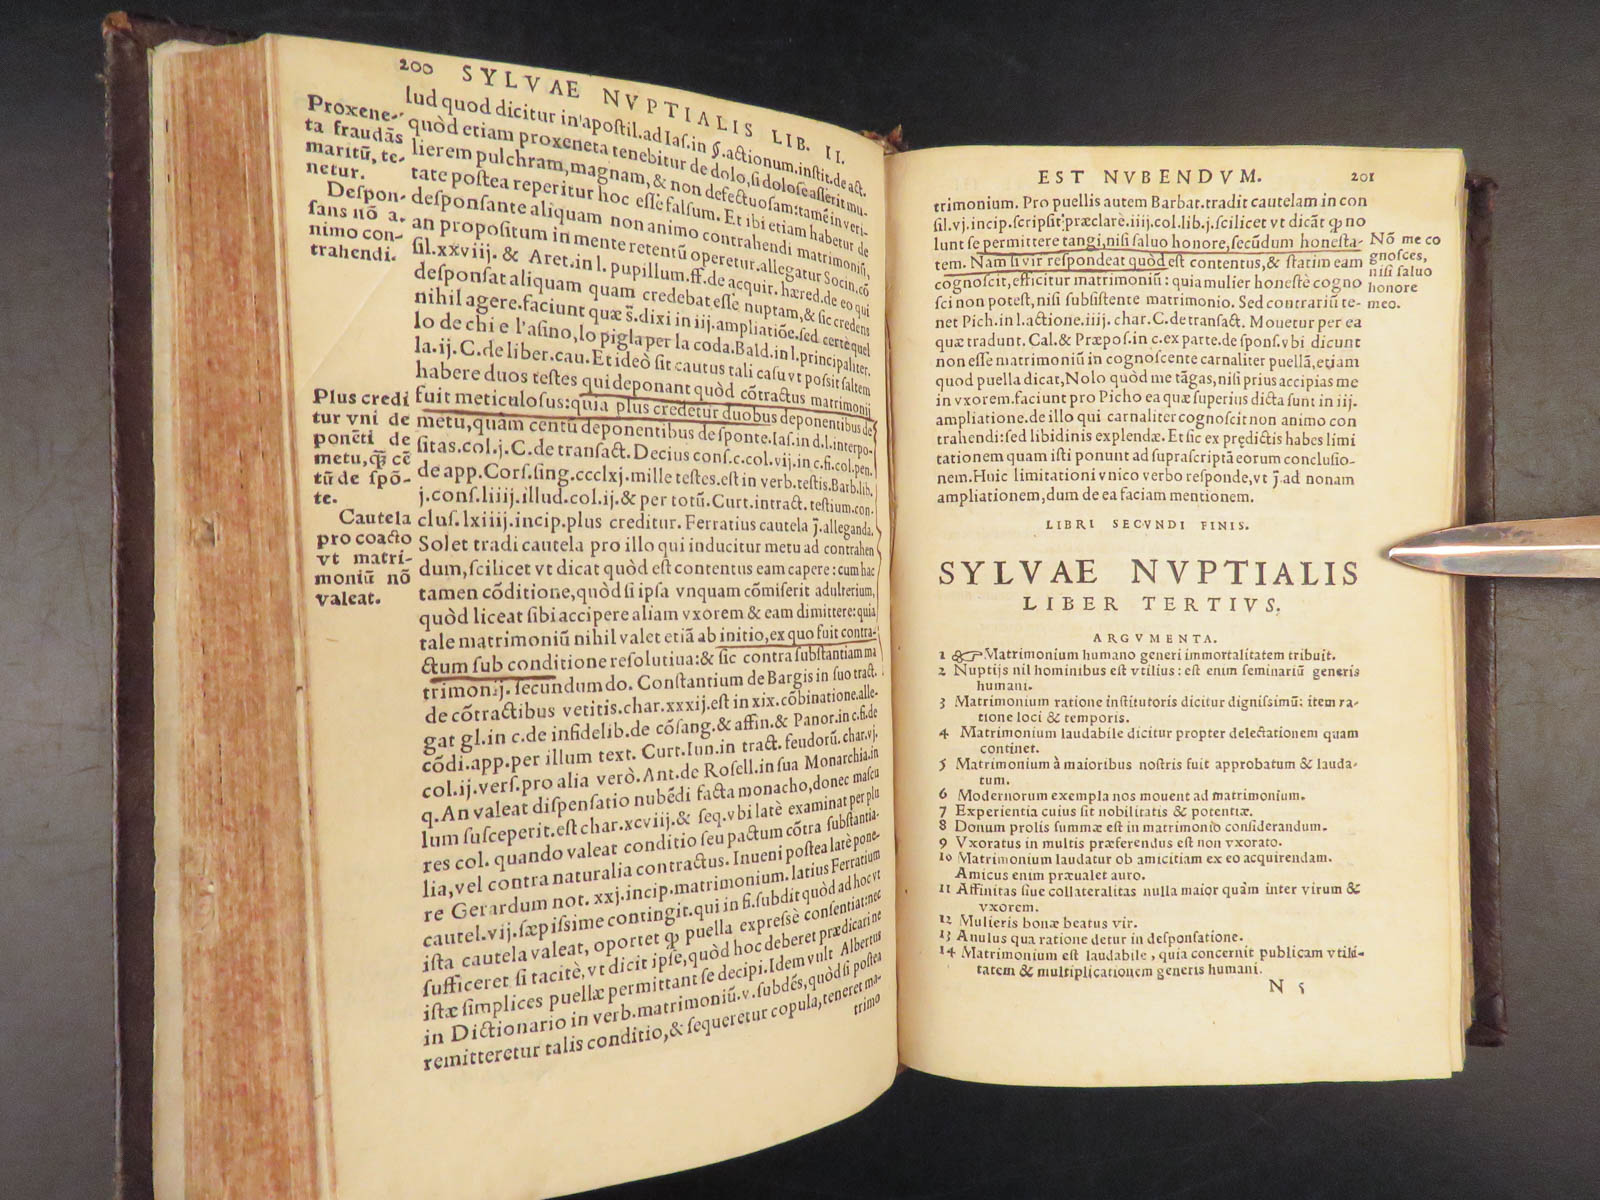 200 SYLVAE NVPTIALIS LIB. II.
Proxene-
ta fraudãs
maritũ, te-
netur.
Despon-
sans nõ a-
nimo con-
trahendi.
Plus credi
tur vni de
ponẽti de
metu, ꝙ̃ cẽ
tũ de spõ-
te.
Cautela
pro coacto
vt matri-
moniũ nõ
valeat.
lud quod dicitur in apostil.ad Ias.in §.actionum.instit.de act.
quòd etiam proxeneta tenebitur de dolo, si dolose asserit mu-
lierem pulchram, magnam, & non defectuosam: tamẽ in veri-
tate postea reperitur hoc esse falsum. Et ibi etiam habetur de
desponsante aliquam non animo contrahendi matrimoniũ,
an propositum in mente retentũ operetur.allegatur Socin.cõ
sil.xxviij. & Aret.in l. pupillum.ff.de acquir. hæred.de eo qui
desponsat aliquam quam credebat esse nuptam, & sic credens
nihil agere.faciunt quæ s̃.dixi in iij.ampliatiõe.sed certe quel
lo de chi e l'asino, lo pigla per la coda. Bald.in l.principaliter.
la.ij. C.de liber.cau. Et ideò sit cautus tali casu vt possit saltem
habere duos testes qui deponant quòd cõtractus matrimonij
fuit meticulosus: quia plus credetur duobus deponentibus de
metu, quàm centũ deponentibus de sponte. Ias.in d.l.interpo-
sitas.col.j. C.de transact. Decius cons.c.col.vij.in c.fi.col.pen.
de app. Cors.sing.ccclxj.mille testes.est in verb.testis. Barb.lib.
j.cons.liiij.illud.col.ij.& per totũ. Curt.in tract. testium.con-
clus.lxiiij.incip.plus creditur. Ferratius cautela j̃.alleganda.
Solet tradi cautela pro illo qui inducitur metu ad contrahen
dum, scilicet vt dicat quòd est contentus eam capere: cum hac
tamen cõditione, quòd si ipsa vnquam cõmiserit adulterium,
quòd liceat sibi accipere aliam vxorem & eam dimittere: quia
tale matrimoniũ nihil valet etiã ab initio, ex quo fuit contra-
ctum sub conditione resolutiua: & sic contra substantiam ma
trimonij. secundum do. Constantium de Bargis in suo tract.
de cõtractibus vetitis.char.xxxij.est in xix.cõbinatione.alle-
gat gl.in c.de infidelib.de cõsang.& affin.& Panor.in c.fi.de
cõdi.app.per illum text. Curt.Iun.in tract. feudorũ.char.vj.
col.ij.vers.pro alia verò. Ant.de Rosell.in sua Monarchia.in
q. An valeat dispensatio nubẽdi facta monacho, donec mascu
lum susceperit.est char.xcviij.& seq.vbi latè examinat per plu
res col. quando valeat conditio seu pactum cõtra substantia-
lia, vel contra naturalia contractus. Inueni postea latè pone-
re Gerardum not. xxj.incip.matrimonium. latius Ferratium
cautel.vij.sæpissime contingit.qui in fi.subdit quòd ad hoc vt
ista cautela valeat, oportet ꝙ puella expressè consentiat: nec
sufficeret si tacitè, vt dicit ipse, quòd hoc deberet prædicari ne
istæ simplices puellæ permittant se decipi. Idem vult Albertus
in Dictionario in verb.matrimoniũ.v.subdẽs, quòd si postea
remitteretur talis conditio, & sequeretur copula, teneret ma-
trimo
EST NVBENDVM. 201
trimonium. Pro puellis autem Barbat.tradit cautelam in con
sil.vj.incip.scripsit præclarè.iiij.col.lib.j.scilicet vt dicãt ꝙ no
lunt se permittere tangi, nisi saluo honore, secũdum honesta-
tem. Nam si vir respondeat quòd est contentus, & statim eam
cognoscit, efficitur matrimoniũ: quia mulier honestè cogno
sci non potest, nisi subsistente matrimonio. Sed contrariũ te-
net Pich.in l.actione.iiij. char. C.de transact. Mouetur per ea
quæ tradunt. Cal.& Præpos.in c.ex parte.de spons.vbi dicunt
non esse matrimoniũ in cognoscente carnaliter puellã, etiam
quod puella dicat, Nolo quòd me tãgas, nisi prius accipias me
in vxorem.faciunt pro Picho ea quæ superius dicta sunt in iij.
ampliatione.de illo qui carnaliter cognoscit non animo con
trahendi: sed libidinis explendæ. Et sic ex prędictis habes limi
tationem quam isti ponunt ad suprascriptã eorum conclusio-
nem. Huic limitationi vnico verbo responde, vt j̃.ad nonam
ampliationem, dum de ea faciam mentionem.
Nõ me co
gnosces,
nisi saluo
honore
meo.
LIBRI SECVNDI FINIS.
SYLVAE NVPTIALIS
LIBER TERTIVS.
ARGVMENTA.
1 ☞ Matrimonium humano generi immortalitatem tribuit.
2 Nuptijs nil hominibus est vtilius: est enim seminariũ generis
humani.
3 Matrimonium ratione institutoris dicitur dignissimũ: item ra-
tione loci & temporis.
4 Matrimonium laudabile dicitur propter delectationem quam
continet.
5 Matrimonium à maioribus nostris fuit approbatum & lauda-
tum.
6 Modernorum exempla nos mouent ad matrimonium.
7 Experientia cuius sit nobilitatis & potentiæ.
8 Donum prolis summæ est in matrimonio considerandum.
9 Vxoratus in multis præferendus est non vxorato.
10 Matrimonium laudatur ob amicitiam ex eo acquirendam.
Amicus enim præualet auro.
11 Affinitas siue collateralitas nulla maior quàm inter virum &
vxorem.
12 Mulieris bonæ beatus vir.
13 Anulus qua ratione detur in desponsatione.
14 Matrimonium est laudabile, quia concernit publicam vtili-
tatem & multiplicationem generis humani.
N 5